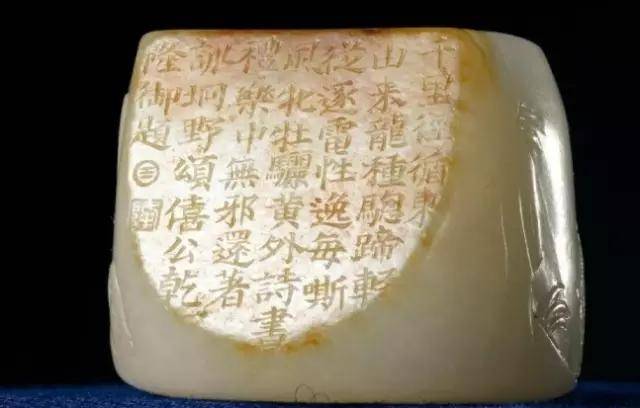 千里徑循
由來龍種驄蹄輕
從逐電性逸每嘶
風牝牡驪黃外詩書
禮樂中無邪還著
訓坰野頌僖公乾
隆御題